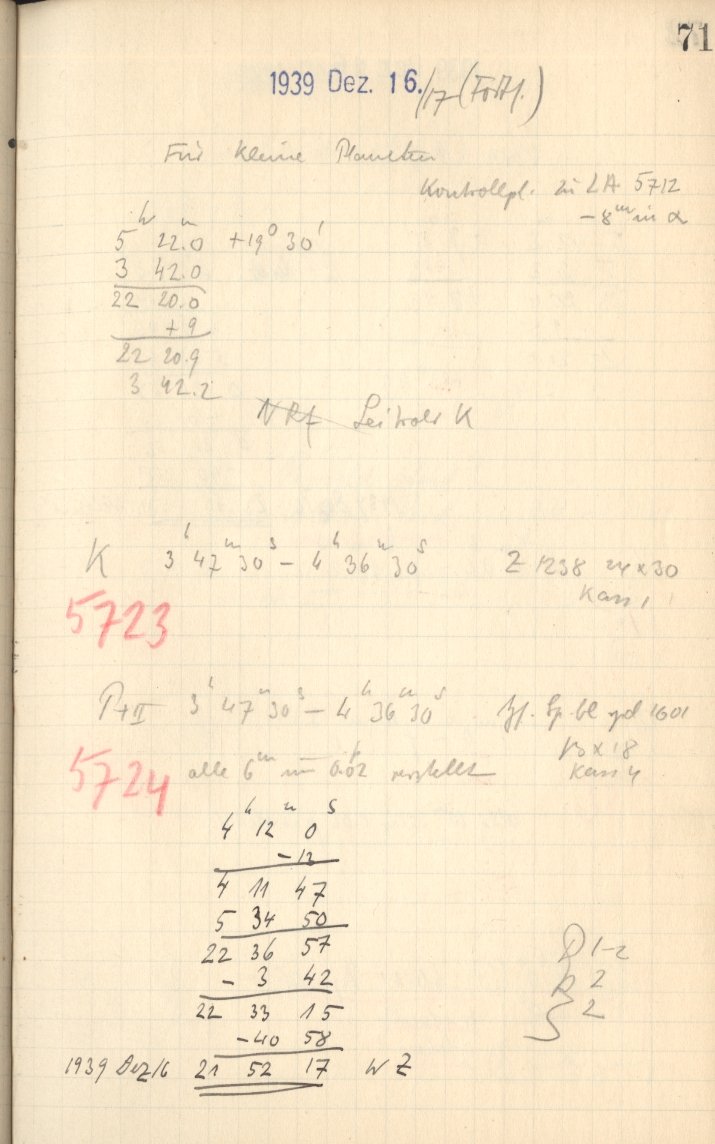 71
1939 Dez. 16./17 (Forts.)
Für Kleine Planeten
Kontrollpl. zu LA 5712
-8ᵐ in α
5ʰ 22ᵐ.0 +19° 30'
3 42.0
22 20.0
+9
22 20.9
3 42.2
NRf Leitrohr K
K 3ʰ 47ᵐ 30ˢ – 4ʰ 36ᵐ 30ˢ Z 1238 24 x 30
Kass 1
5723
P+II 3ʰ 47ᵐ 30ˢ – 4ʰ 36ᵐ 30ˢ 1601
13 x 18
5724 alle 6ᵐ um 0.02 verstellt Kass 4
4ʰ 12ᵐ 0ˢ
-13
4 11 47
5 34 50
22 36 57
- 3 42
22 33 15
-40 58
1939 Dez 16 21 52 17 W Z
D 1-2
R 2
S 2